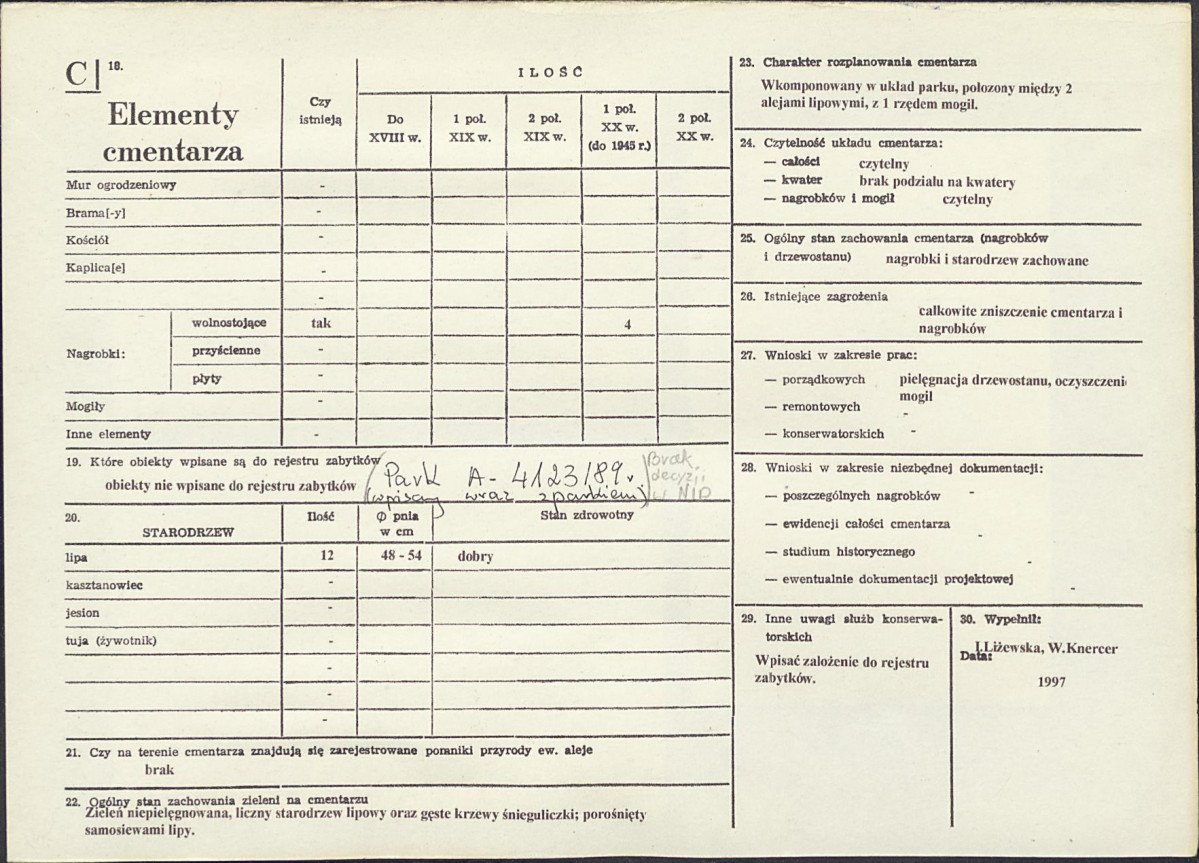 C 18.
Elementy
cmentarza
Czy
istnieją
ILOŚĆ
Do
XVIII w.
1 poł.
XIX w.
2 poł.
XIX w.
1 poł.
XX w.
(do 1945 r.)
2 poł.
XX w.
Mur ogrodzeniowy -
Brama[-y] -
Kościół -
Kaplica[e] -
-
Nagrobki:
wolnostojące tak 4
przyścienne -
płyty -
Mogiły -
Inne elementy -
19. Które obiekty wpisane są do rejestru zabytków
obiekty nie wpisane do rejestru zabytków
Park A-4123/89r.
(wpisany wraz z parkiem)
Brak
decyzji
w NID
20.
STARODRZEW
Ilość
∅ pnia
w cm
Stan zdrowotny
lipa 12 48 - 54 dobry
kasztanowiec -
jesion -
tuja (żywotnik) -
-
-
-
21. Czy na terenie cmentarza znajdują się zarejestrowane pomniki przyrody ew. aleje
brak
22. Ogólny stan zachowania zieleni na cmentarzu
Zieleń niepielęgnowana, liczny starodrzew lipowy oraz gęste krzewy śnieguliczki; porośnięty
samosiewami lipy.
23. Charakter rozplanowania cmentarza
Wkomponowany w układ parku, położony między 2
alejami lipowymi, z 1 rzędem mogił.
24. Czytelność układu cmentarza:
— całości czytelny
— kwater brak podziału na kwatery
— nagrobków i mogił czytelny
25. Ogólny stan zachowania cmentarza (nagrobków
i drzewostanu) nagrobki i starodrzew zachowane
26. Istniejące zagrożenia
całkowite zniszczenie cmentarza i
nagrobków
27. Wnioski w zakresie prac:
— porządkowych pielęgnacja drzewostanu, oczyszczeni
mogił
— remontowych -
— konserwatorskich -
28. Wnioski w zakresie niezbędnej dokumentacji:
— poszczególnych nagrobków -
— ewidencji całości cmentarza -
— studium historycznego -
— ewentualnie dokumentacji projektowej -
29. Inne uwagi służb konserwa-
torskich
Wpisać założenie do rejestru
zabytków.
30. Wypełnił:
I.Liżewska, W.Knercer
Data:
1997